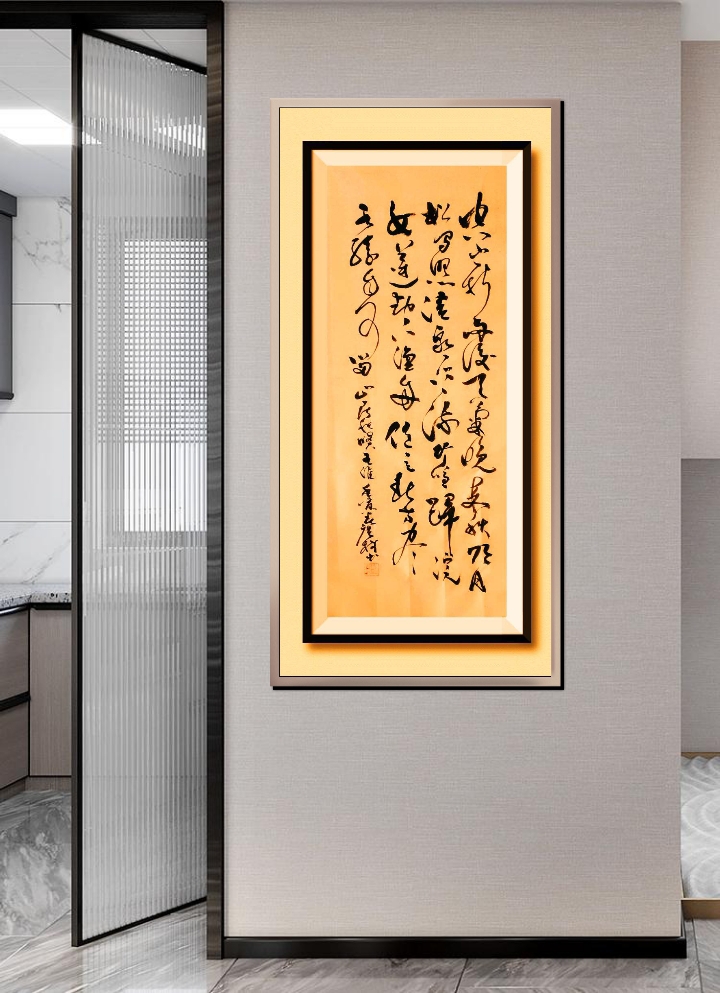 空山新雨後天氣晚來秋明月
松間照清泉石上流竹喧歸浣
女蓮動下漁舟随意春芳歇
王孫自可留 山居秋暝 王維